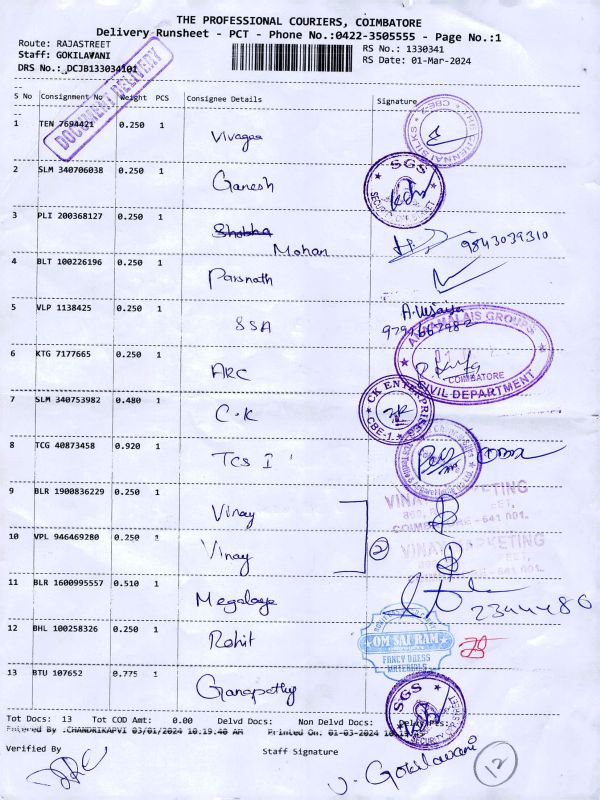 THE PROFESSIONAL COURIERS, COIMBATORE
Delivery Runsheet - PCT - Phone No.:0422-3505555 - Page No.:1
Route: RAJASTREET
RS No.: 1330341
Staff: GOKILAVANI
RS Date: 01-Mar-2024
DRS No.: DCJB133034101
DOCUMENT DELIVERY
S No Consignment No Weight PCS Consignee Details Signature
1 TEN 7694421 0.250 1
2 SLM 340706038 0.250 1 Ganesh
SGS
3 PLI 200368127 0.250 1 Shobha
Mohan 9843039310
4 BLT 100226196 0.250 1 Parsnath
5 VLP 1138425 0.250 1 SSA
6 KTG 7177665 0.250 1 ARC
GROUPS
COIMBATORE
CIVIL DEPARTMENT
7 SLM 340753982 0.480 1 C.K
CK ENTERPRISES
CBE-1
8 TCG 40873458 0.920 1 TCS I
9 BLR 1900836229 0.250 1 Vinay
VINAY MARKETING
COIMBATORE - 641 001.
10 VPL 946469280 0.250 1 Vinay
2
VINAY MARKETING
11 BLR 1600995557 0.510 1 Megalaya
2344486
12 BHL 100258326 0.250 1 Rohit
OM SAI RAM
FANCY DRESS
MATERIALS
13 BTU 107652 0.775 1 Ganapathy
SGS
SECURITY
Tot Docs: 13 Tot COD Amt: 0.00 Delvd Docs: Non Delvd Docs: Delvy Pcs:
Entered By :CHANDRIKAPVI 03/01/2024 10:19.40 AM Printed On: 01-03-2024
Verified By
Staff Signature
V. Gokilawani
12